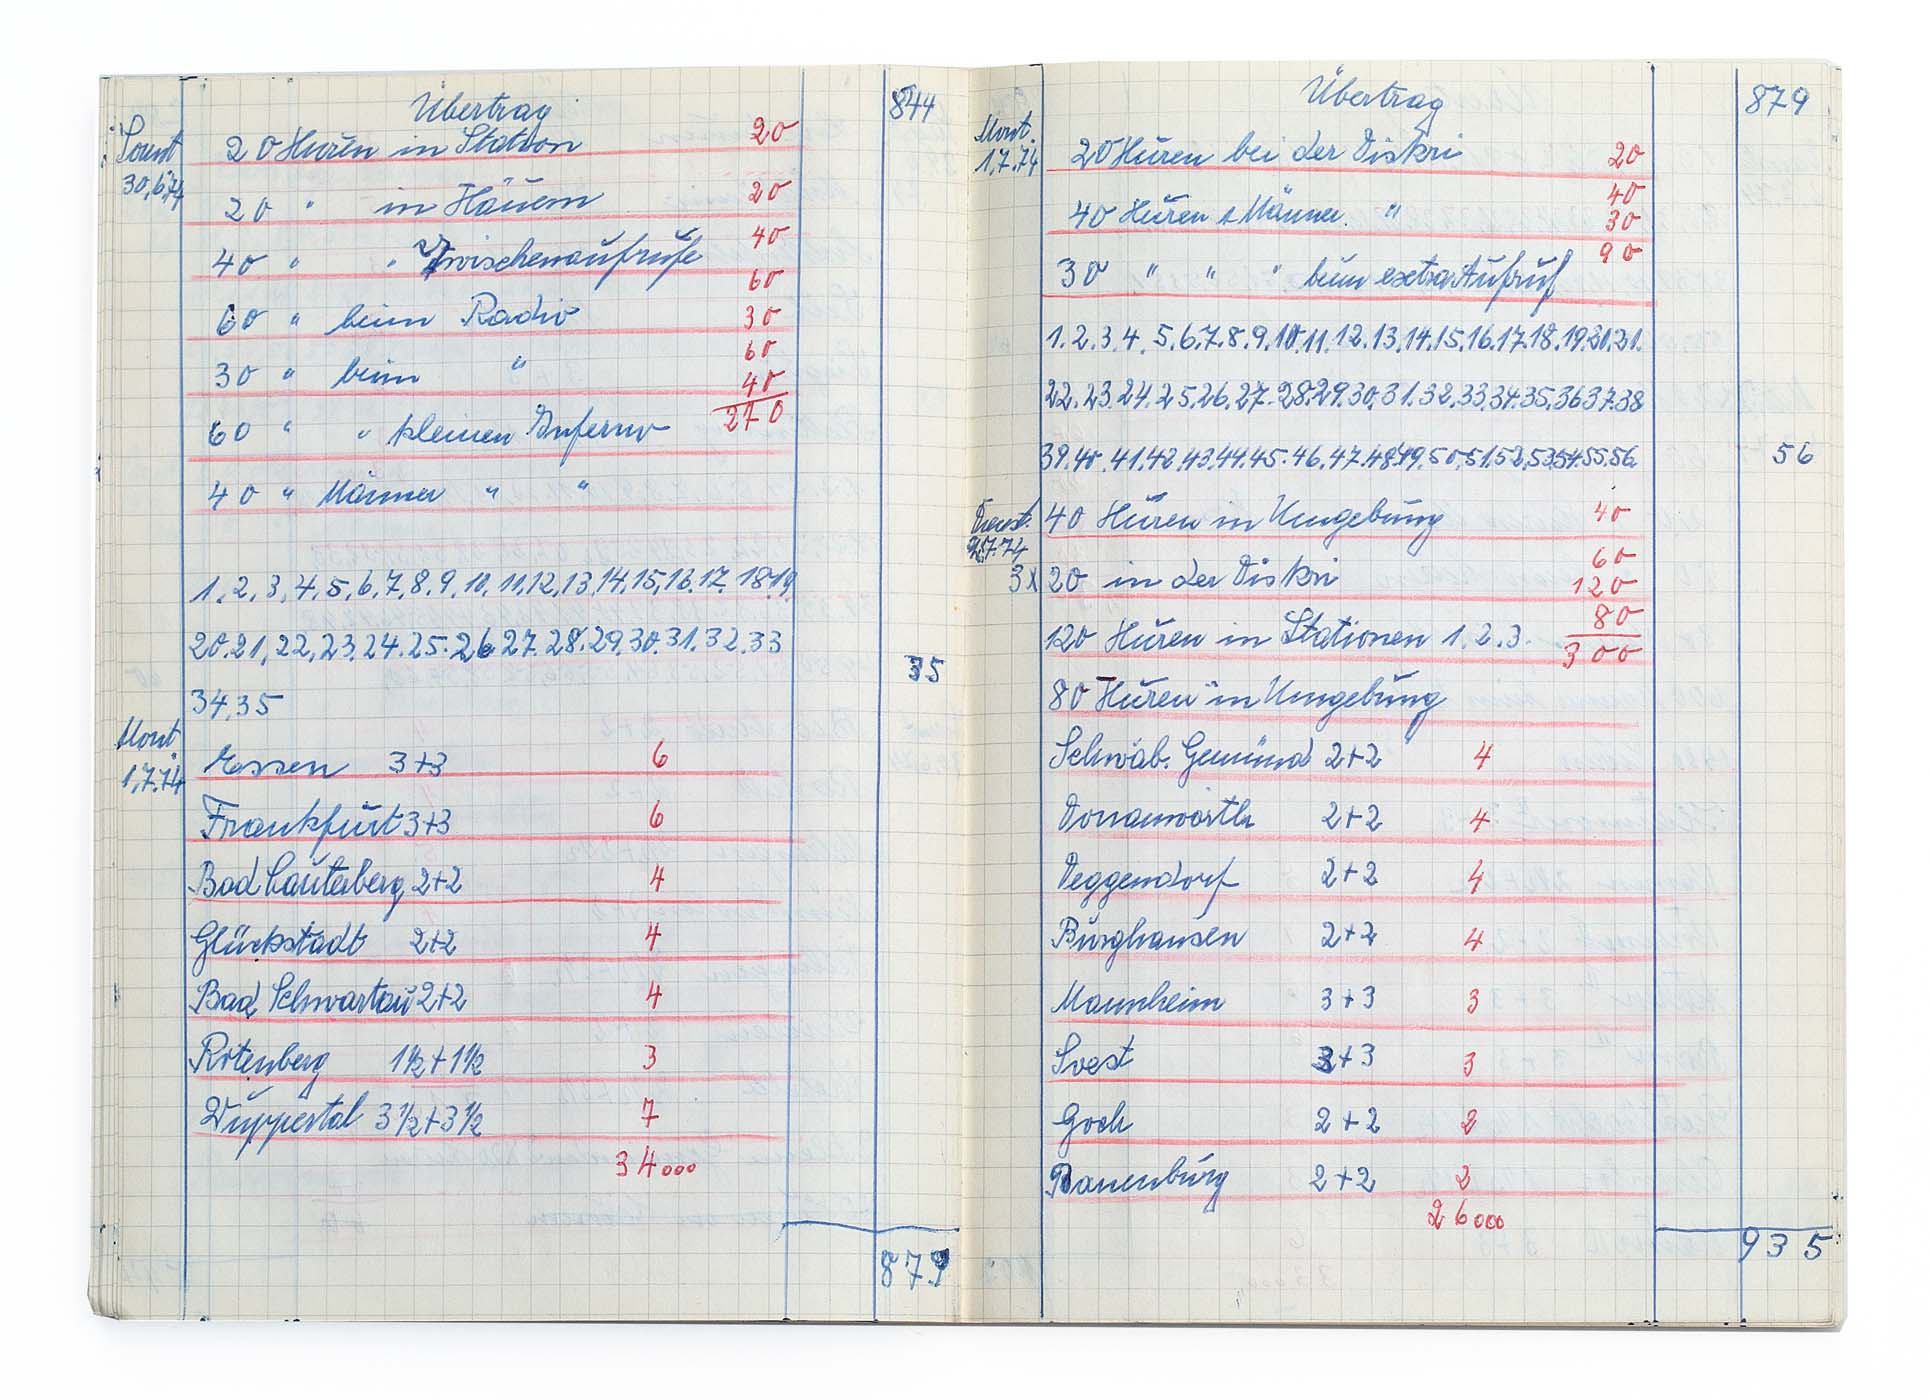 Übertrag 844
Sonnt 30.6.74 20 Huren in Station 20
20 " in Häuern 20
40 " " Zwischenaufrufe 40
60 " beim Radio 60
30 " beim " 30
60 " " kleinen Inferno 60
40 " Männer " " 40
270
1. 2. 3. 4. 5. 6. 7. 8. 9. 10. 11. 12. 13. 14. 15. 16. 17. 18. 19.
20. 21. 22. 23. 24. 25. 26 27. 28. 29. 30. 31. 32. 33
34. 35 35
Mont. 1.7.74 Essen 3+3 6
Frankfurt 3+3 6
Bad Lauterberg 2+2 4
Glückstadt 2+2 4
Bad Schwartau 2+2 4
Rotenberg 1½+1½ 3
Wuppertal 3½+3½ 7
34000
879
Übertrag 879
Mont. 1.7.74 20 Huren bei der Diskri 20
40 Huren + Männer. " 40
30 " " " beim extra Aufruf 30
90
1. 2. 3. 4. 5. 6. 7. 8. 9. 10. 11. 12. 13. 14. 15. 16. 17. 18. 19. 20. 21.
22. 23. 24. 25. 26. 27. 28. 29. 30. 31. 32. 33. 34. 35. 36 37. 38
39. 40. 41. 42. 43. 44. 45. 46. 47. 48. 49. 50. 51. 52. 53. 54. 55. 56. 56
2.7.74 40 Huren in Umgebung 40
3x 20 in der Diskri 60
120 Huren in Stationen 1. 2. 3. 120
80 Huren in Umgebung 80
300
Schwäb. Gemünd 2+2 4
Donauwörth 2+2 4
Deggendorf 2+2 4
Burghausen 2+2 4
Mannheim 3+3 3
Soest 3+3 3
Goch 2+2 2
2+2 2
26000
935